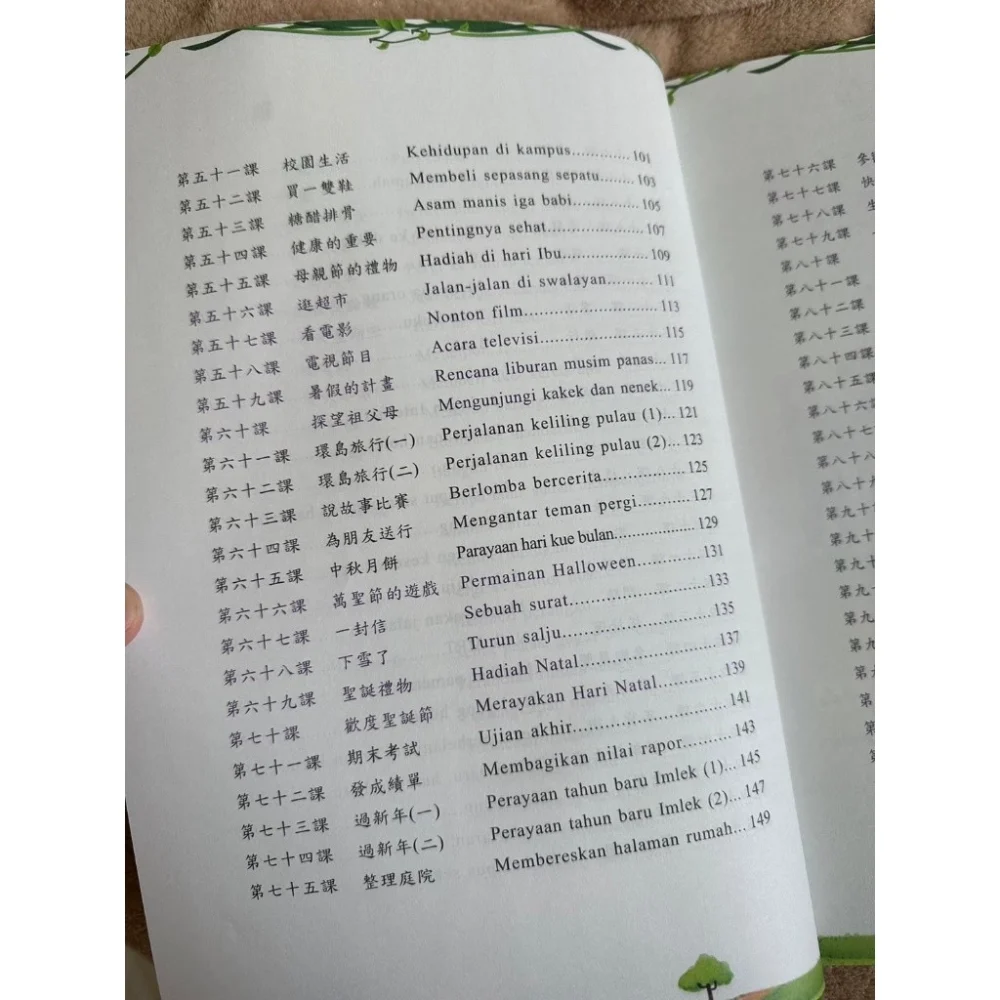 第五十一課 校園生活 Kehidupan di kampus............. 101
第五十二課 買一雙鞋 Membeli sepasang sepatu........ 103
第五十三課 糖醋排骨 Asam manis iga babi............... 105
第五十四課 健康的重要 Pentingnya sehat..................... 107
第五十五課 母親節的禮物 Hadiah di hari Ibu................... 109
第五十六課 逛超市 Jalan-jalan di swalayan.......... 111
第五十七課 看電影 Nonton film............................. 113
第五十八課 電視節目 Acara televisi........................... 115
第五十九課 暑假的計畫 Rencana liburan musim panas... 117
第六十課 探望祖父母 Mengunjungi kakek dan nenek... 119
第六十一課 環島旅行(一) Perjalanan keliling pulau (1)... 121
第六十二課 環島旅行(二) Perjalanan keliling pulau (2)... 123
第六十三課 說故事比賽 Berlomba bercerita.................. 125
第六十四課 為朋友送行 Mengantar teman pergi........... 127
第六十五課 中秋月餅 Parayaan hari kue bulan................. 129
第六十六課 萬聖節的遊戲 Permainan Halloween............. 131
第六十七課 一封信 Sebuah surat............................ 133
第六十八課 下雪了 Turun salju.............................. 135
第六十九課 聖誕禮物 Hadiah Natal........................... 137
第七十課 歡度聖誕節 Merayakan Hari Natal............. 139
第七十一課 期末考試 Ujian akhir............................. 141
第七十二課 發成績單 Membagikan nilai rapor.......... 143
第七十三課 過新年(一) Perayaan tahun baru Imlek (1)... 145
第七十四課 過新年(二) Perayaan tahun baru Imlek (2)... 147
第七十五課 整理庭院 Membereskan halaman rumah... 149
第七十六課
第七十七課 快
第七十八課
第七十九課
第八十課
第八十一課
第八十二課
第八十三課
第八十四課
第八十五課
第八十六課
第八十七
第八十八
第八十九
第九十
第九十
第九十
第九
第九
第九
第
第
第
第